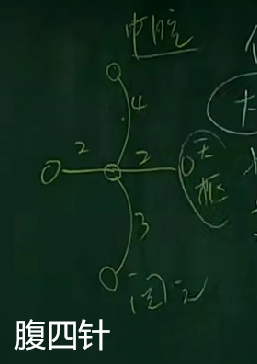 中脘
4
2
2
天
枢
3
关元
腹四针